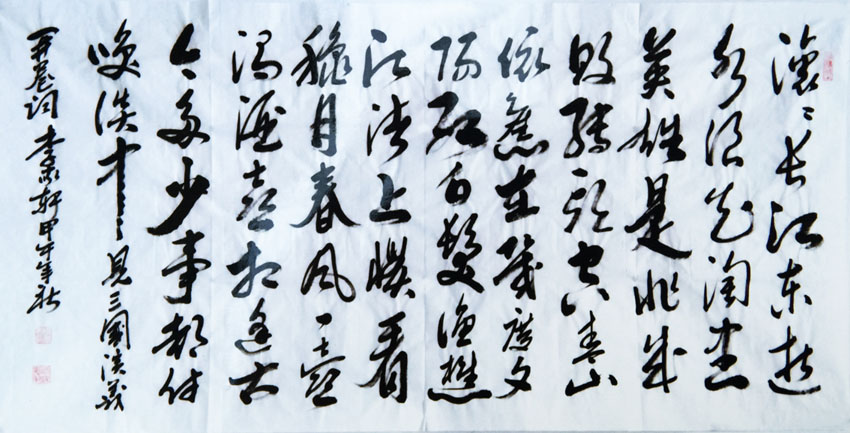 滚〻长江东逝
水浪花淘尽
英雄是非成
败转头空青山
依舊在幾度夕
阳红白髮渔樵
江渚上慣看
穐月春风一壺
濁酒喜相逢古
今多少事都付
笑谈中 見三國演義
开卷词 李 轩甲午年秋